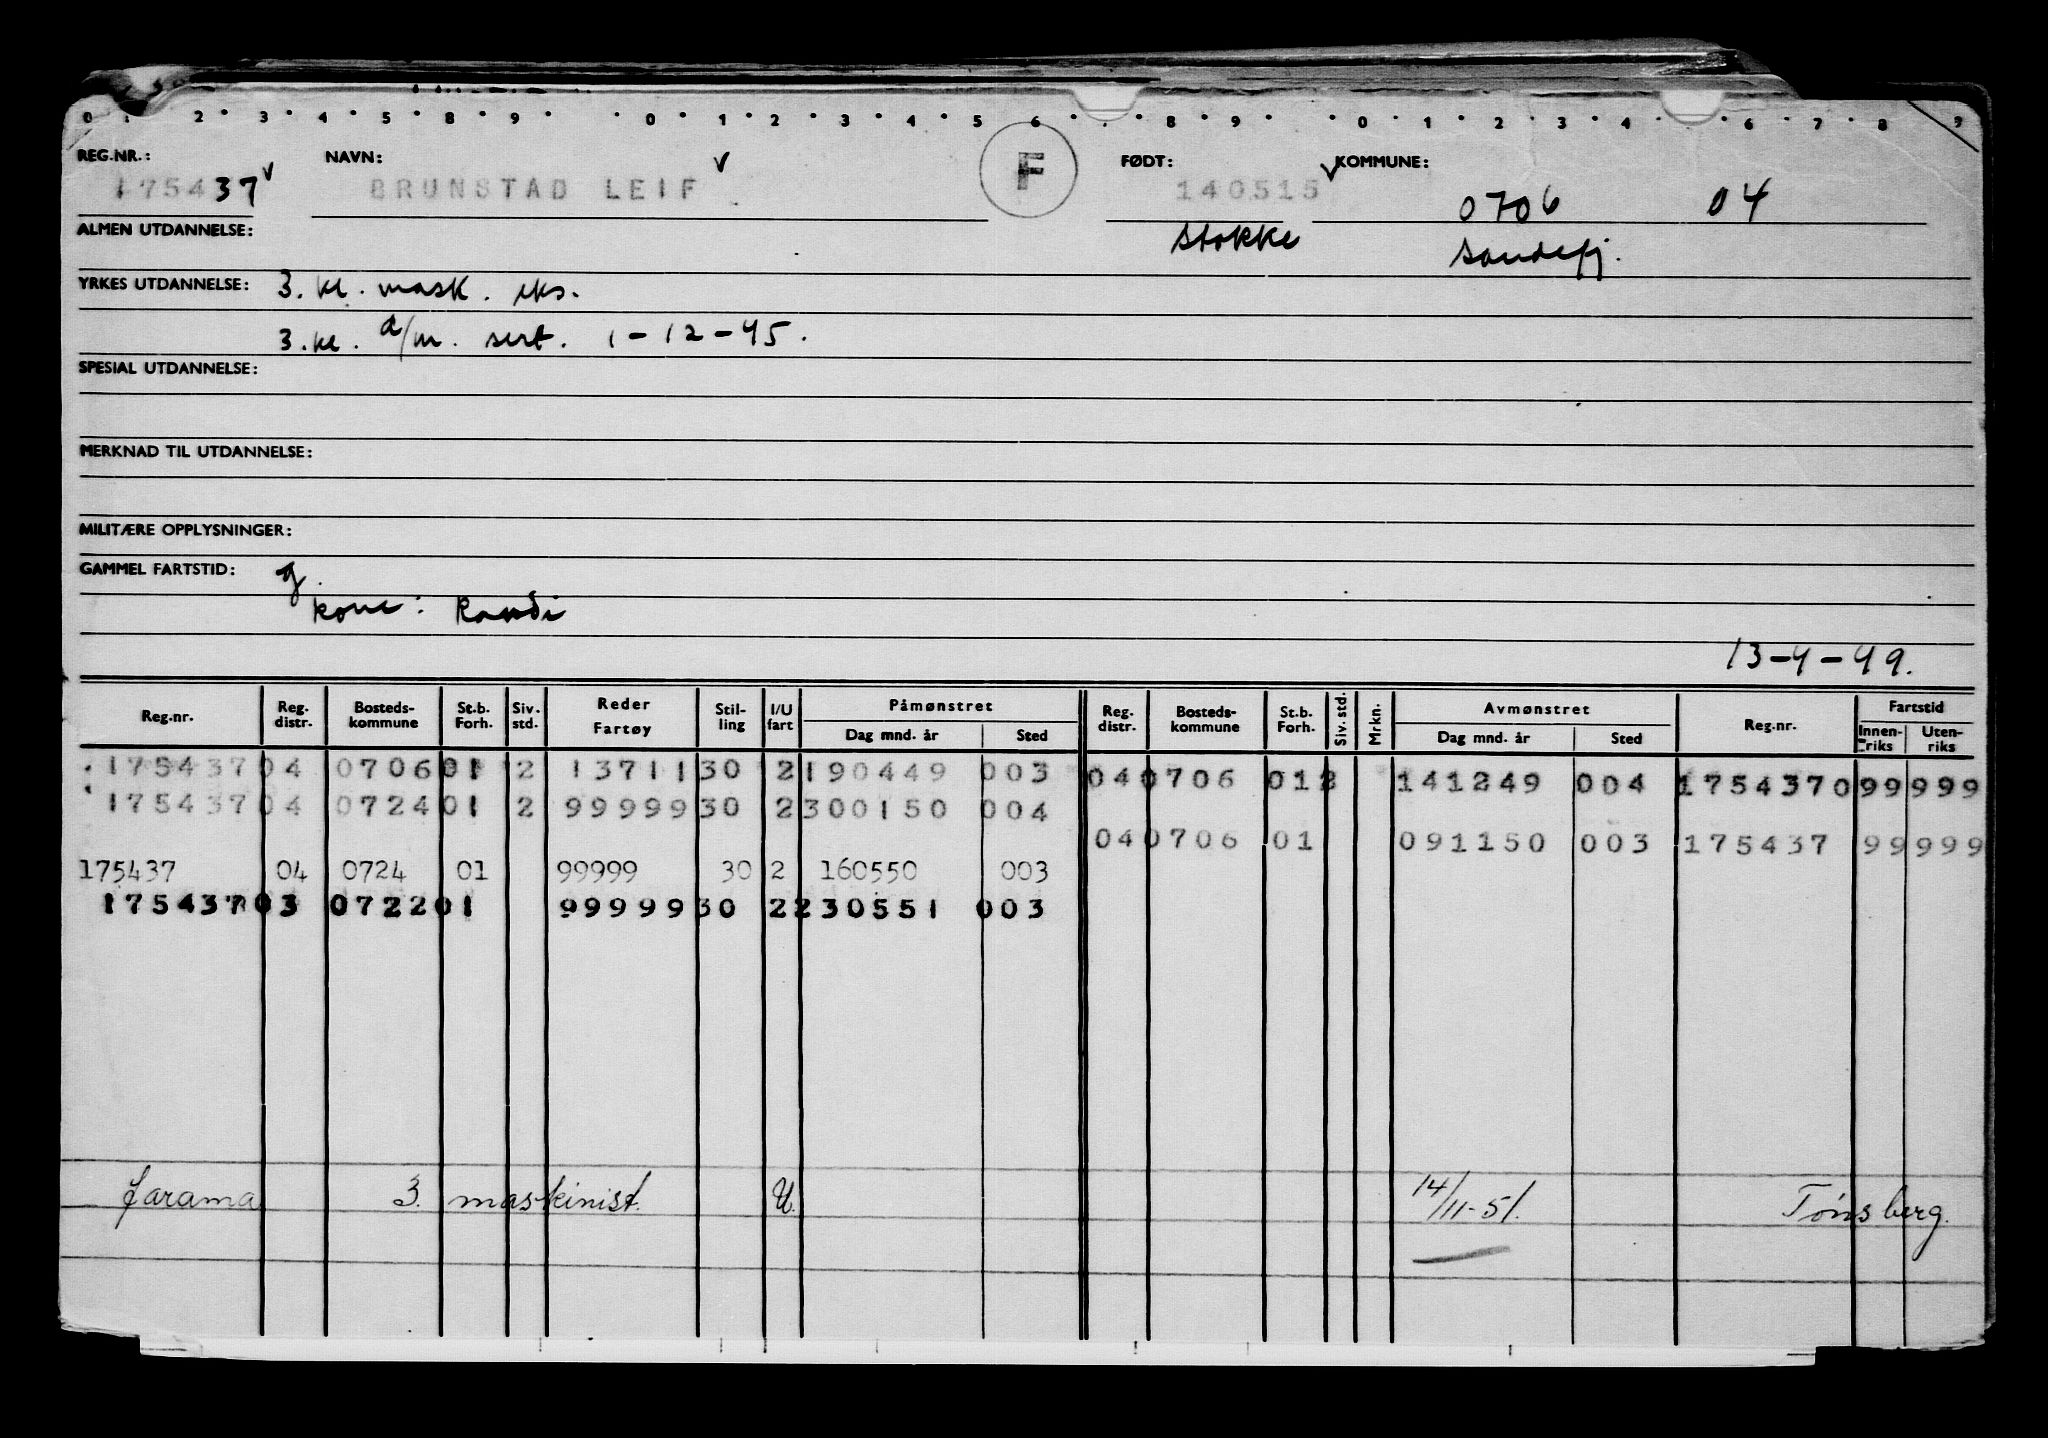 0 1 2 3 4 5 8 9 0 1 2 3 4 5 6 8 9 0 1 2 3 4 6 7 8 9
REG.NR.: NAVN: F FØDT: KOMMUNE:
175437 BRUNSTAD LEIF 140515 0706 04
ALMEN UTDANNELSE: Stokke Sandefj.
YRKES UTDANNELSE: 3. kl. mask. eks.
3. kl. d/m. sert. 1-12-45.
SPESIAL UTDANNELSE:
MERKNAD TIL UTDANNELSE:
MILITÆRE OPPLYSNINGER:
GAMMEL FARTSTID: g.
kone: Randi
13-4-49.
Reg.nr. Reg. distr. Bosteds-kommune St.b. Forh. Siv. std. Reder Fartøy Stil-ling I/U fart Påmønstret Dag mnd. år Sted Reg. distr. Bosteds-kommune St.b. Forh. Siv. std. Mrkn. Avmønstret Dag mnd. år Sted Reg.nr. Fartstid Innen-riks Uten-riks
175437 04 0706 01 2 13711 30 2 190449 003 04 0706 01 2 141249 004 1754370 99 999
175437 04 0724 01 2 99999 30 2 300150 004
04 0706 01 091150 003 175437 99 999
175437 04 0724 01 99999 30 2 160550 003
175437 03 0722 01 99999 30 2 230551 003
Jarama 3. maskinist. U. 14/11-51. Tønsberg.